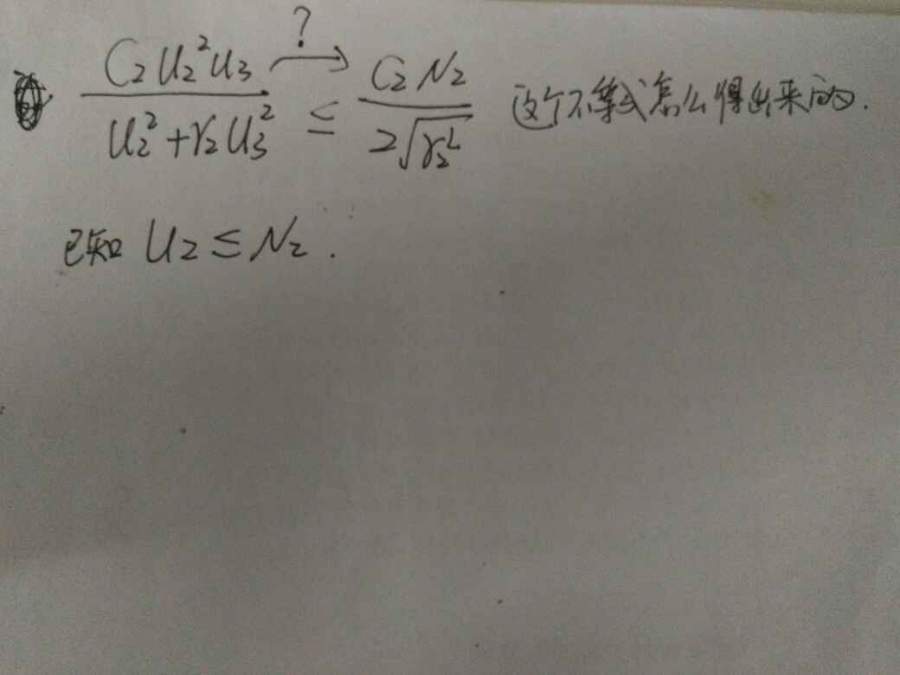 ?
C₂U₂²U₃ / (U₂²+γ₂U₃²) ≤ C₂N₂ / (2√γ₂ᴸ) 这个不等式怎么得出来的.
已知 U₂ ≤ N₂.